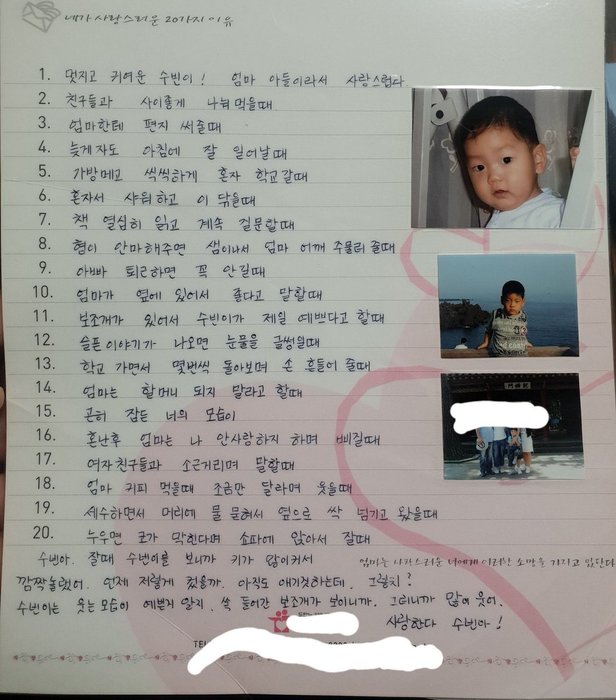 네가 사랑스러운 20가지 이유
1. 멋지고 귀여운 수빈이! 엄마 아들이라서 사랑스럽다.
2. 친구들과 사이좋게 나눠먹을때
3. 엄마한테 편지 써줄때
4. 늦게자도 아침에 잘 일어날때
5. 가방메고 씩씩하게 혼자 학교갈때
6. 혼자서 샤워하고 이 닦을때
7. 책 열심히 읽고 계속 질문할때
8. 형이 안마해주면 샘이나서 엄마 어깨 주물러 줄때
9. 아빠 퇴근하면 꼭 안길때
10. 엄마가 옆에 있어서 좋다고 말할때
11. 보조개가 있어서 수빈이가 제일 예쁘다고 할때
12. 슬픈이야기가 나오면 눈물을 글썽일때
13. 학교 가면서 몇번씩 돌아보며 손 흔들어 줄때
14. 엄마는 할머니 되지 말라고 할때
15. 곤히 잠든 너의 모습이
16. 혼난후 엄마는 나 안사랑하지 하며 삐질때
17. 여자친구들과 소근거리며 말할때
18. 엄마 커피 먹을때 조금만 달라며 웃을때
19. 세수하면서 머리에 물 묻혀서 옆으로 싹 넘기고 왔을때
20. 누우면 코가 막힌다며 쇼파에 앉아서 잘때
수빈아. 잘때 수빈이를 보니까 키가 많이커서
엄마는 사랑스러운 너에게 이러한 소망을 가지고 있단다
깜짝놀랬어. 언제 저렇게 컸을까. 아직도 애기것하는데. 그렇지?
수빈이는 웃는모습이 예쁜지 알지. 쏙 들어간 보조개가 보이니까. 그러니까 많이 웃어.
사랑한다 수빈아!
TEL